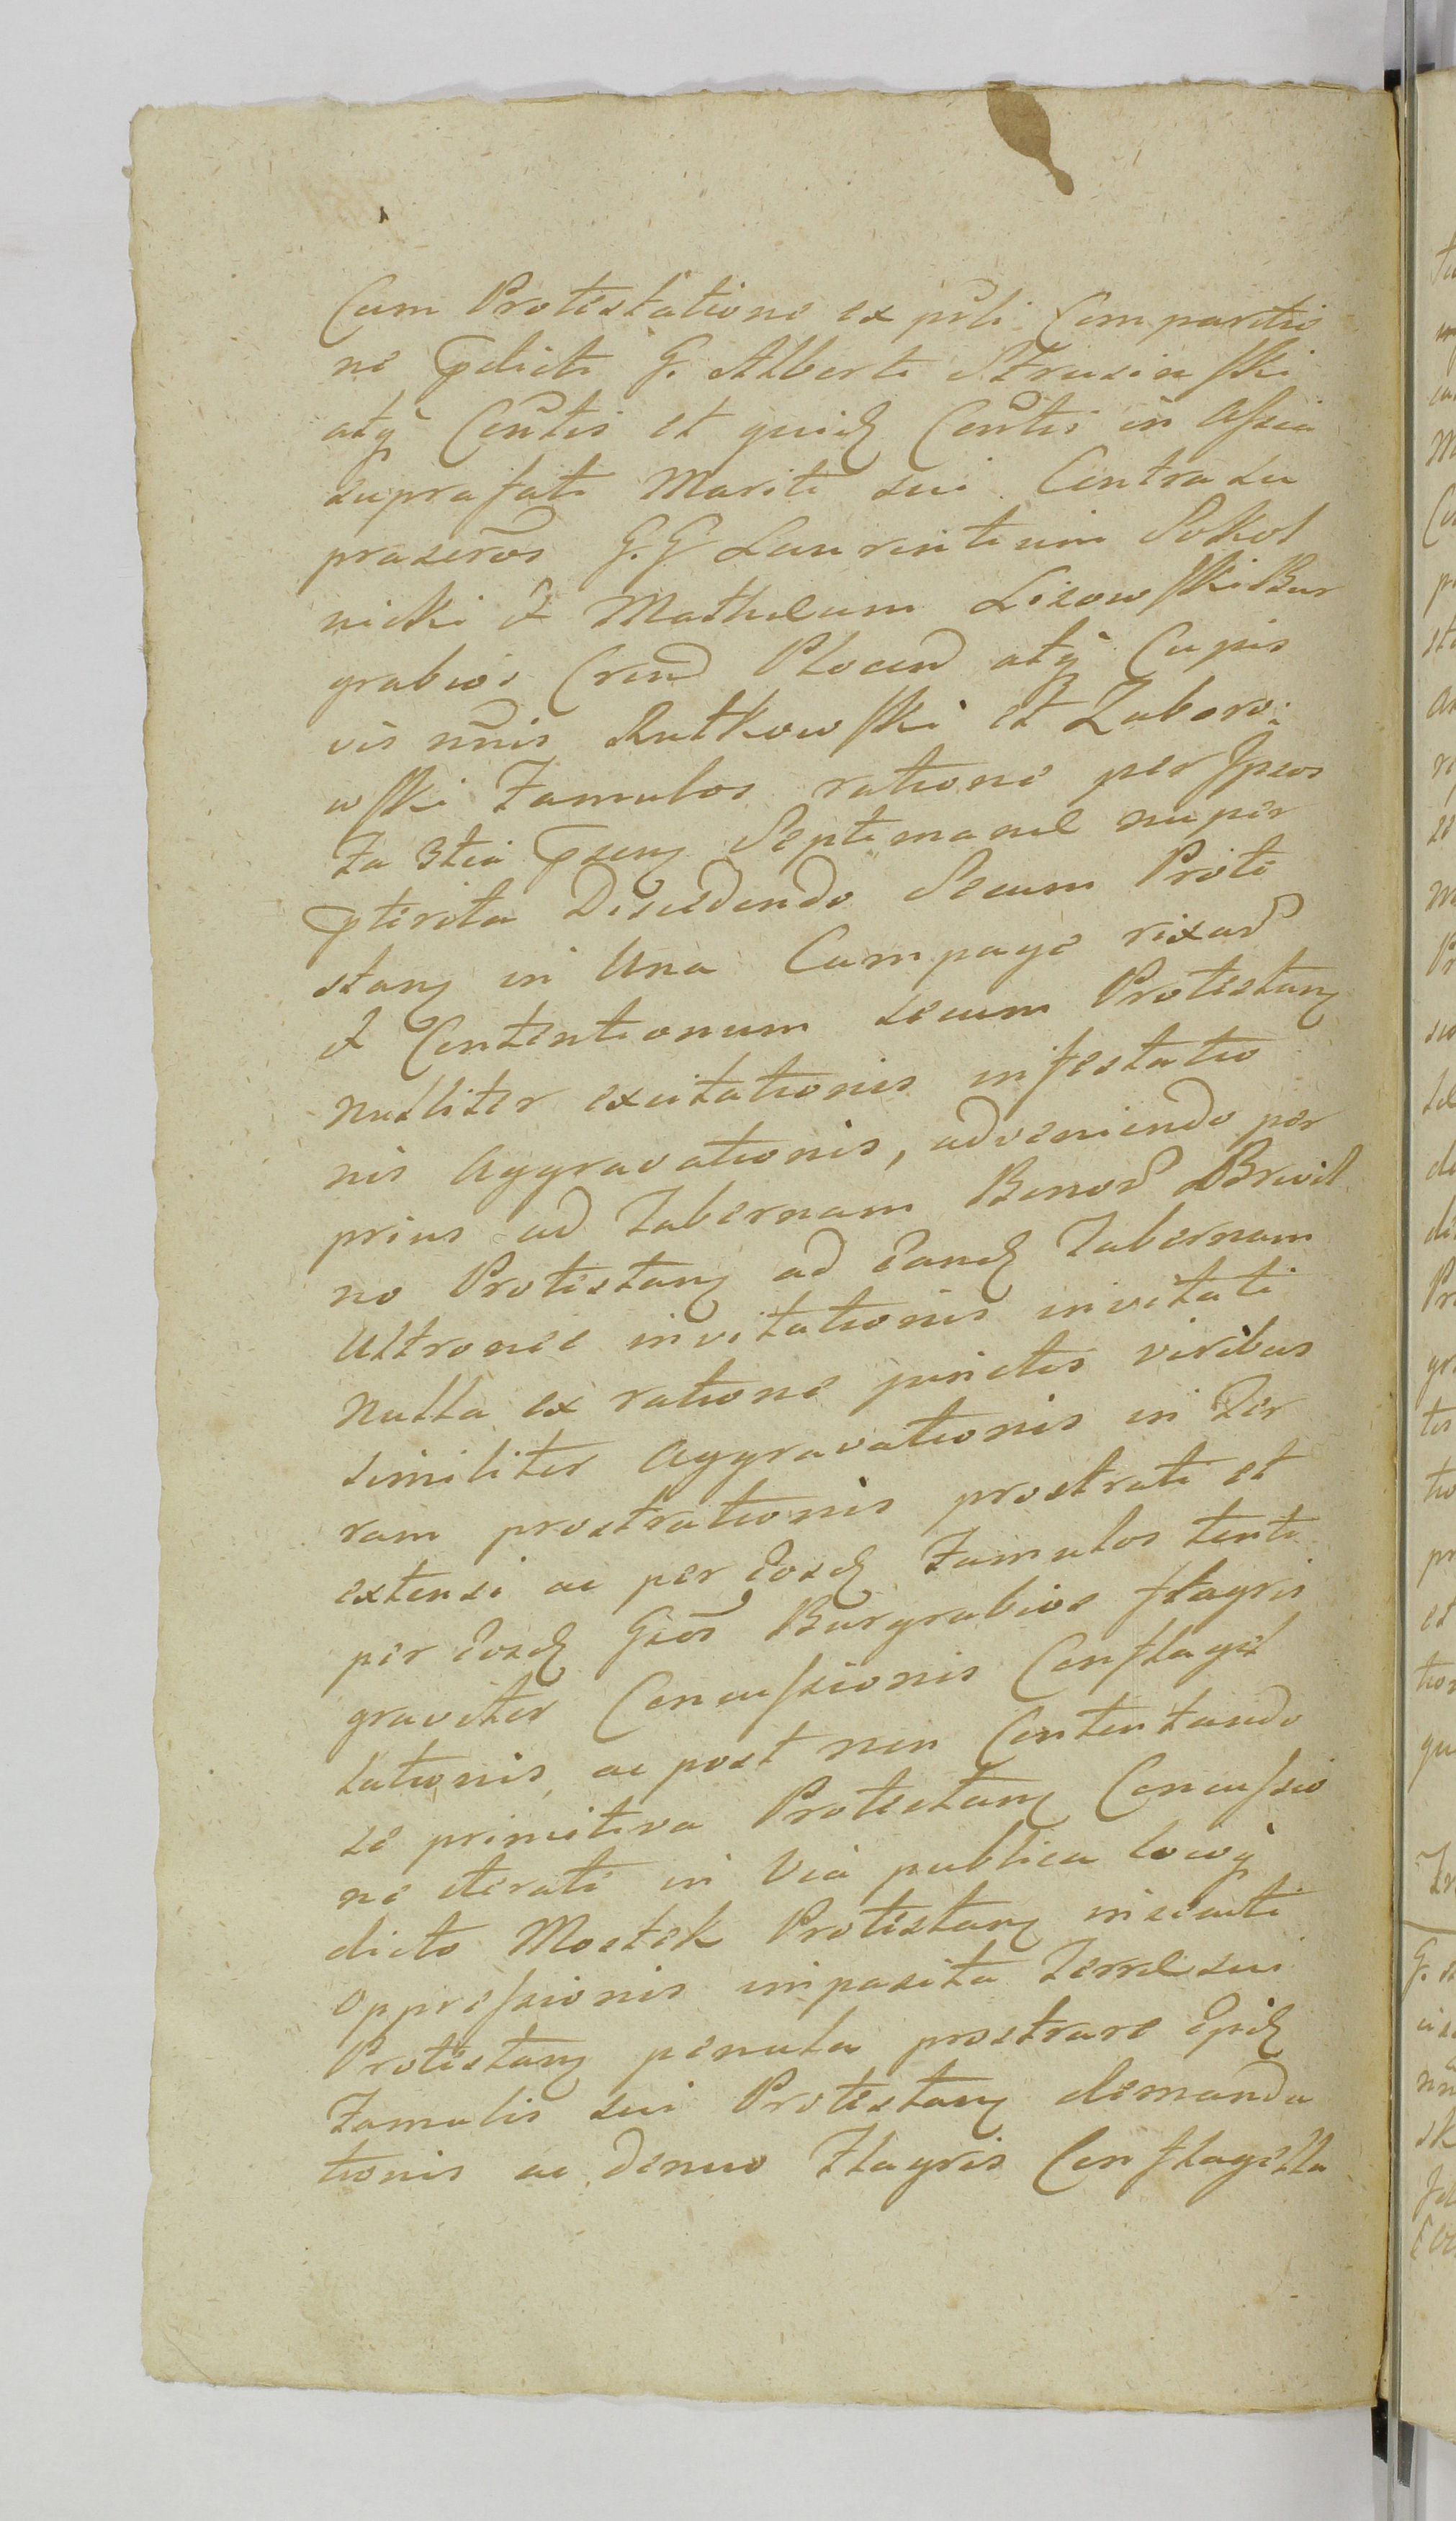 Cum Protestatione ex pñti Comparitio
ne pdicti G. Alberti Strusinski
atq Conñtis et quid Conñtis in Assia
suprafati Mariti sui Contra su
praseros G.G Laurentium Sokol
nicki & Mathæum Lisowski Bur
grabios Cren Plocen atq Cujus
vis nñis Rutkowski et Zaboro:
wski Famulos ratione per Ipsos
Fa 3tia pseng Septimanæ nuper
pterita Discedendo Secum Prote
stang in Una Campage rixar
& Contentionum secum Protestang
nulliter excitationis infestatio
nis Aggravationis, adveniendo per
prius ad Tabernam Bonor Brwil
no Protestang ad Eand Tabernam
Ultronee invitationis invitati
Nulla ex ratione junctis viribus
similiter Aggravationis in Ter
ram prostrationis prostrati et
extensi ac per Eosd Famulos tenti
per Eosd Gsos Burgrabios flagris
graviter Concussionis Conflagel
lationis, ac post non Contentando
se primitiva Protestang Concussio
ne iterati in Via publica locoq
dicto Mostek Protestang insecuti
Oppressionis imposita Terræ sui
Protestang penula prostrare Ipid
Famulis sui Protestang demanda
tionis ac denuo Flagris Conflagella